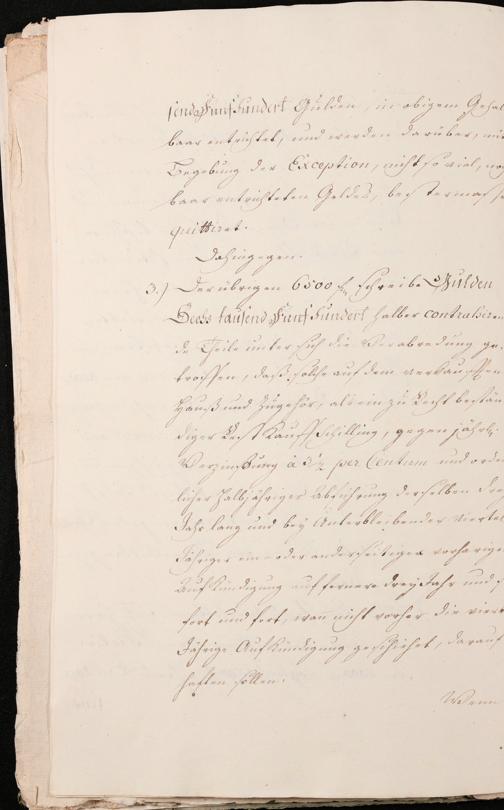 send Fünf Hundert Gulden, in obigem Gehal
baar entrichtet, und werden darüber, mit
Begebung der Exception, nicht so viel, noch
baar entrichteten Geldes, bestermassen
quittiret.
Dahingegen.
3.) Der übrigen 6500 f. schreibe Gulden
Sechs tausend Fünf Hundert halber contrahiren
de Theile unter sich die Verabredung ge
troffen, daß solche auf dem verkaufften
Hauß und Zugehör, als ein zu Recht bestän
diger Rest Kauff Schilling, gegen jährl.
Verzinsung à 3½ per Centum und orden
licher halbjähriger Abführung derselben drey
Jahr lang und bey Unterbleibender viertel
Jähriger ein- oder anderseitigen vorherigen
Aufkündigung auf fernere drey Jahr und so
fort und fort, wan nicht vorher die viertel
Jährige Aufkündigung geschiehet, darauf
haften sollen.
Wenn